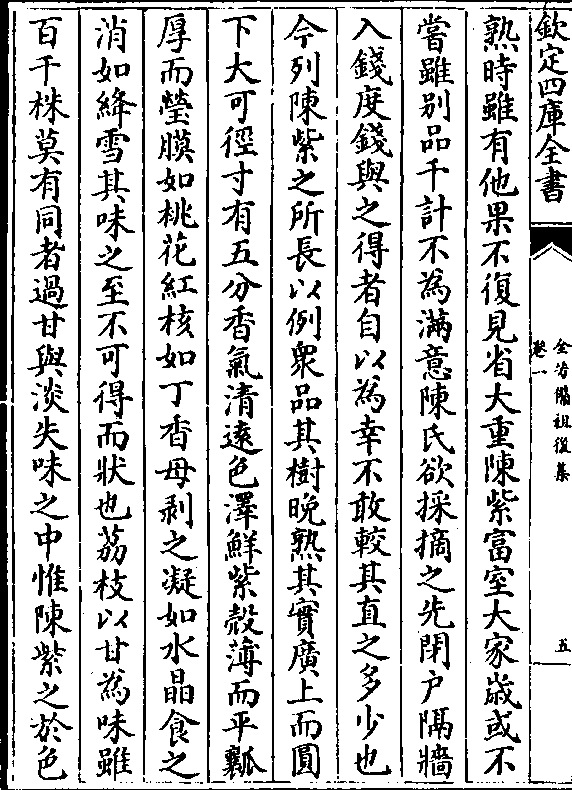 欽定四庫全書
全芳備祖後集
卷一
五
熟時雖有他果不復見省大重陳紫富室大家嵗或不
嘗雖别品千計不為滿意陳氏欲採摘之先閉户隔牆
入錢度錢與之得者自以為幸不敢較其直之多少也
今列陳紫之所長以例衆品其樹晚熟其實廣上而圓
下大可徑寸有五分香氣清遠色澤鮮紫殻薄而平瓤
厚而瑩膜如桃花紅核如丁香母剥之凝如水晶食之
消如絳雪其味之至不可得而狀也荔枝以甘為味雖
百千株莫有同者過甘與淡失味之中惟陳紫之於色